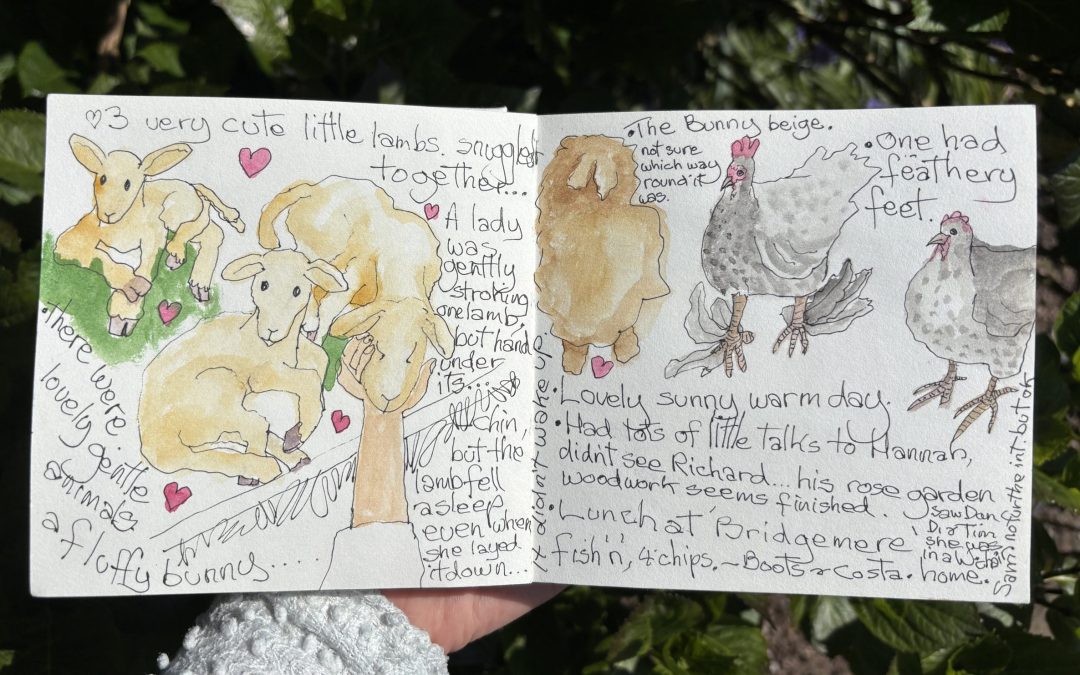 ♡3 very cute little lambs. snuggled
together...
A lady
was
gently
stroking
one lamb,
but hand
under
its...
chin,
but the
lamb fell
asleep
even when
she layed
it down...
& didn't wake up
•There were
lovely gentle
animals
a fluffy bunny.....
•The Bunny beige.
not sure
which way
round it
was.
•One had
feathery
feet.
•Lovely sunny warm day.
•Had lots of little talks to Hannah,
didn't see Richard... his rose garden
woodwork seems finished.
•Lunch at 'Bridgemere'
fish'n', 4 chips. ~Boots ~ Costa. home.
saw Dan &
Di & Tim
she was
in a w.chair
Sam not further
but ok